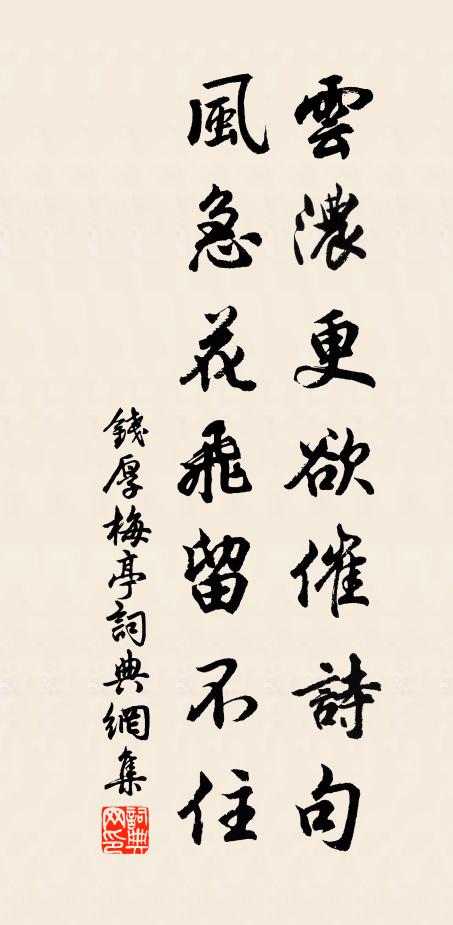 雲濃更欲催詩句
風急花飛留不住
錢厚梅亭詞典網集
詞典網印